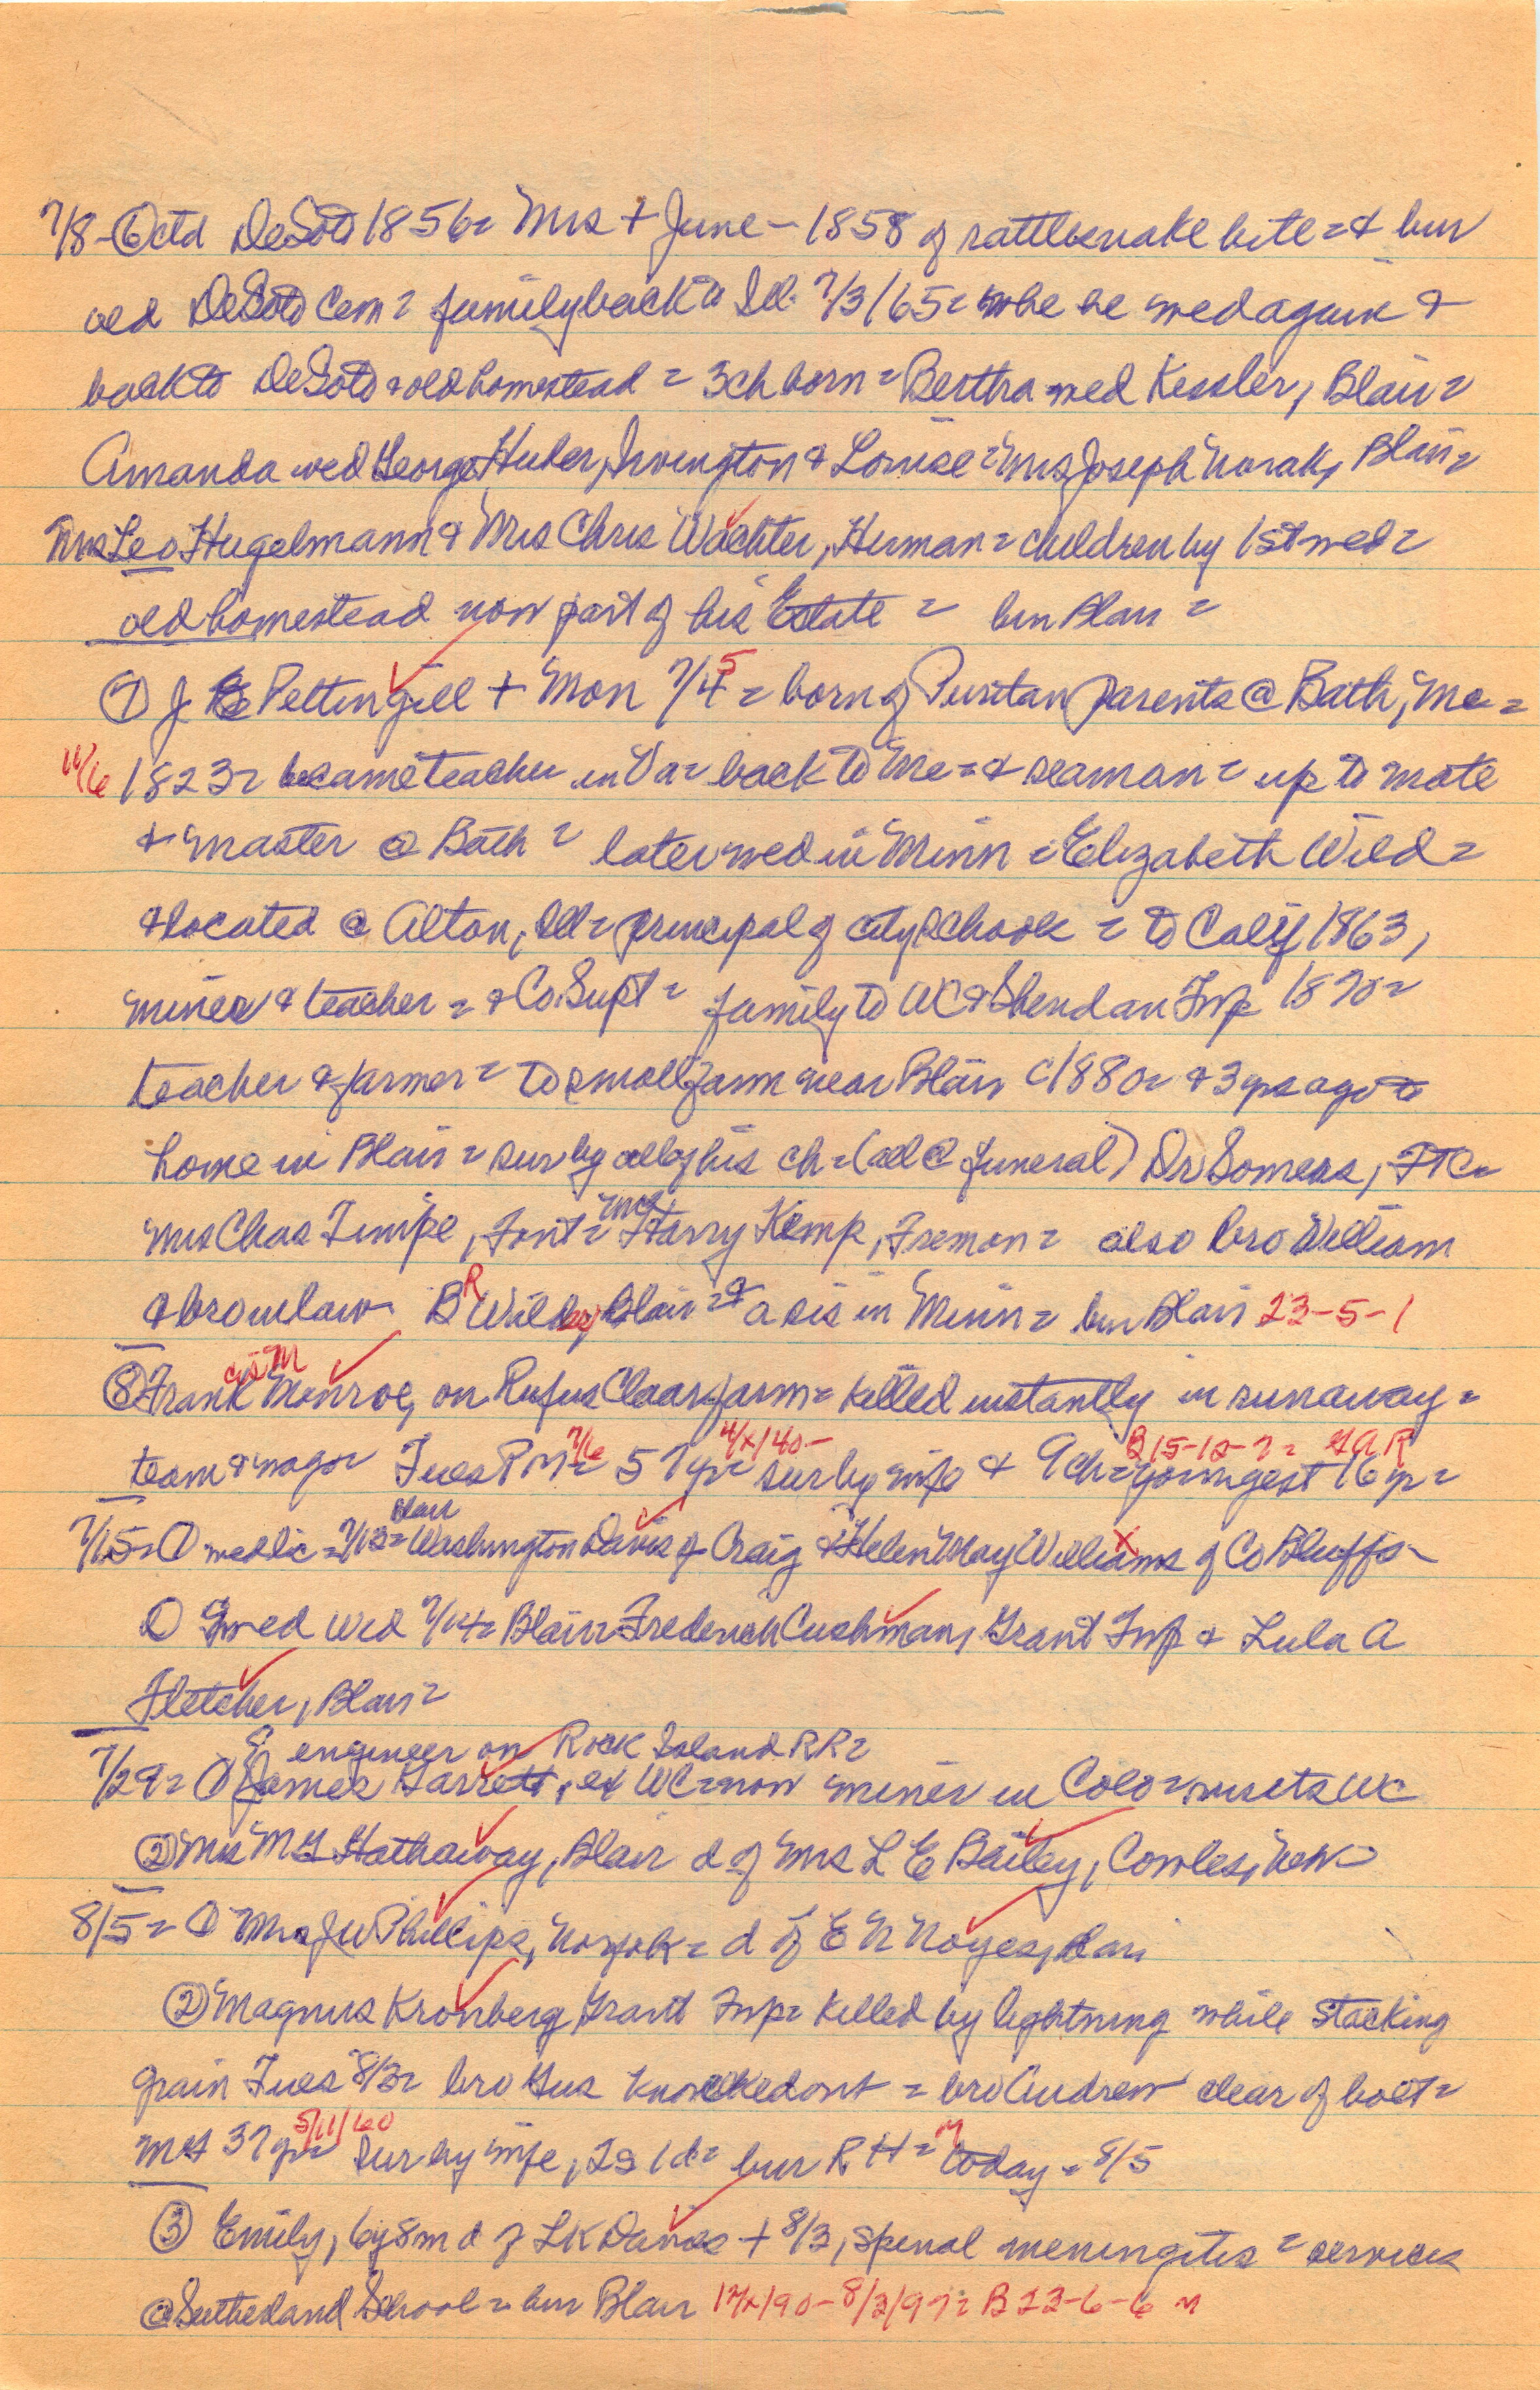 7/8-6 ctd DeSoto 1856= Mrs + June - 1858 of rattlesnake bite = & bur
old DeSoto Cem = family back to Ill. 7/3/65= whe he wed again &
back to DeSoto & old homestead = 3 ch born = Bertha wed Kessler, Blair =
Amanda wed George Huber, Irvington & Louise = Mrs Joseph Novak, Blair =
Mrs Leo Hugelmann & Mrs Chris Wachter, Herman = children by 1st wed =
old homestead now part of his Estate = bur Blair =
⑦ J E Pettingill + Mon 7/4 5 = born of Puritan parents @ Bath, Me =
1823= became teacher in Va = back to Me = & seaman = up to mate
& master @ Bath = later wed in Minn = Elizabeth Wild =
& located @ Alton, Ill = principal of city schools = to Calif 1863,
miner & teacher = & Co. Supt = family to WC & Sheridan Twp 1870 =
teacher & farmer = to small farm near Blair c1880 = & 3 yrs ago to
home in Blair = sur by all of his ch = (all @ funeral) Dr Somers, FTC =
Mrs Chas Timpe, Font = Mrs Harry Kemp, Fremon = also bro William
& bro in law B R Wild, Blair = & a sis in Minn = bur Blair 23-5-1
⑧ Frank M Monroe, on Rufus Claar farm = killed instantly in runaway =
team & wagon Tues PM 7/6 = 57 yr = 4/x/40- sur by wife & 9 ch = youngest 16 yr = B 15-12-7 = GAR
7/15=① wed lic = 7/13= Blair Washington Davis of Craig & Helen May Williams of Co Bluffs -
① wed Wed 7/14= Blair = Frederick Cushman, Grant Twp & Lula A
Fletcher, Blair =
engineer on Rock Island RR =
7/29= ① James Garrett, ex WC = now miner in Colo = visits WC
② Mrs M G Hathaway, Blair d of Mrs L E Bailey, Cowles, Neb
8/5= ① Mrs J W Phillips, Norfolk = d of E N Noyes, Blair
② Magnus Kronberg Grant Twp = killed by lightning while stacking
grain Tues 8/3= bro Gus knocked out = bro Andrew clear of bolt =
M 37 yr = 5/11/60 sur by wife, 2s 1d = bur R H = today = 8/5
③ Emily, 6y8m d of L K Davis + 8/3, spinal meningitis = services
@ Sutherland School = bur Blair 12/x/90 - 8/3/97= B 22-6-6